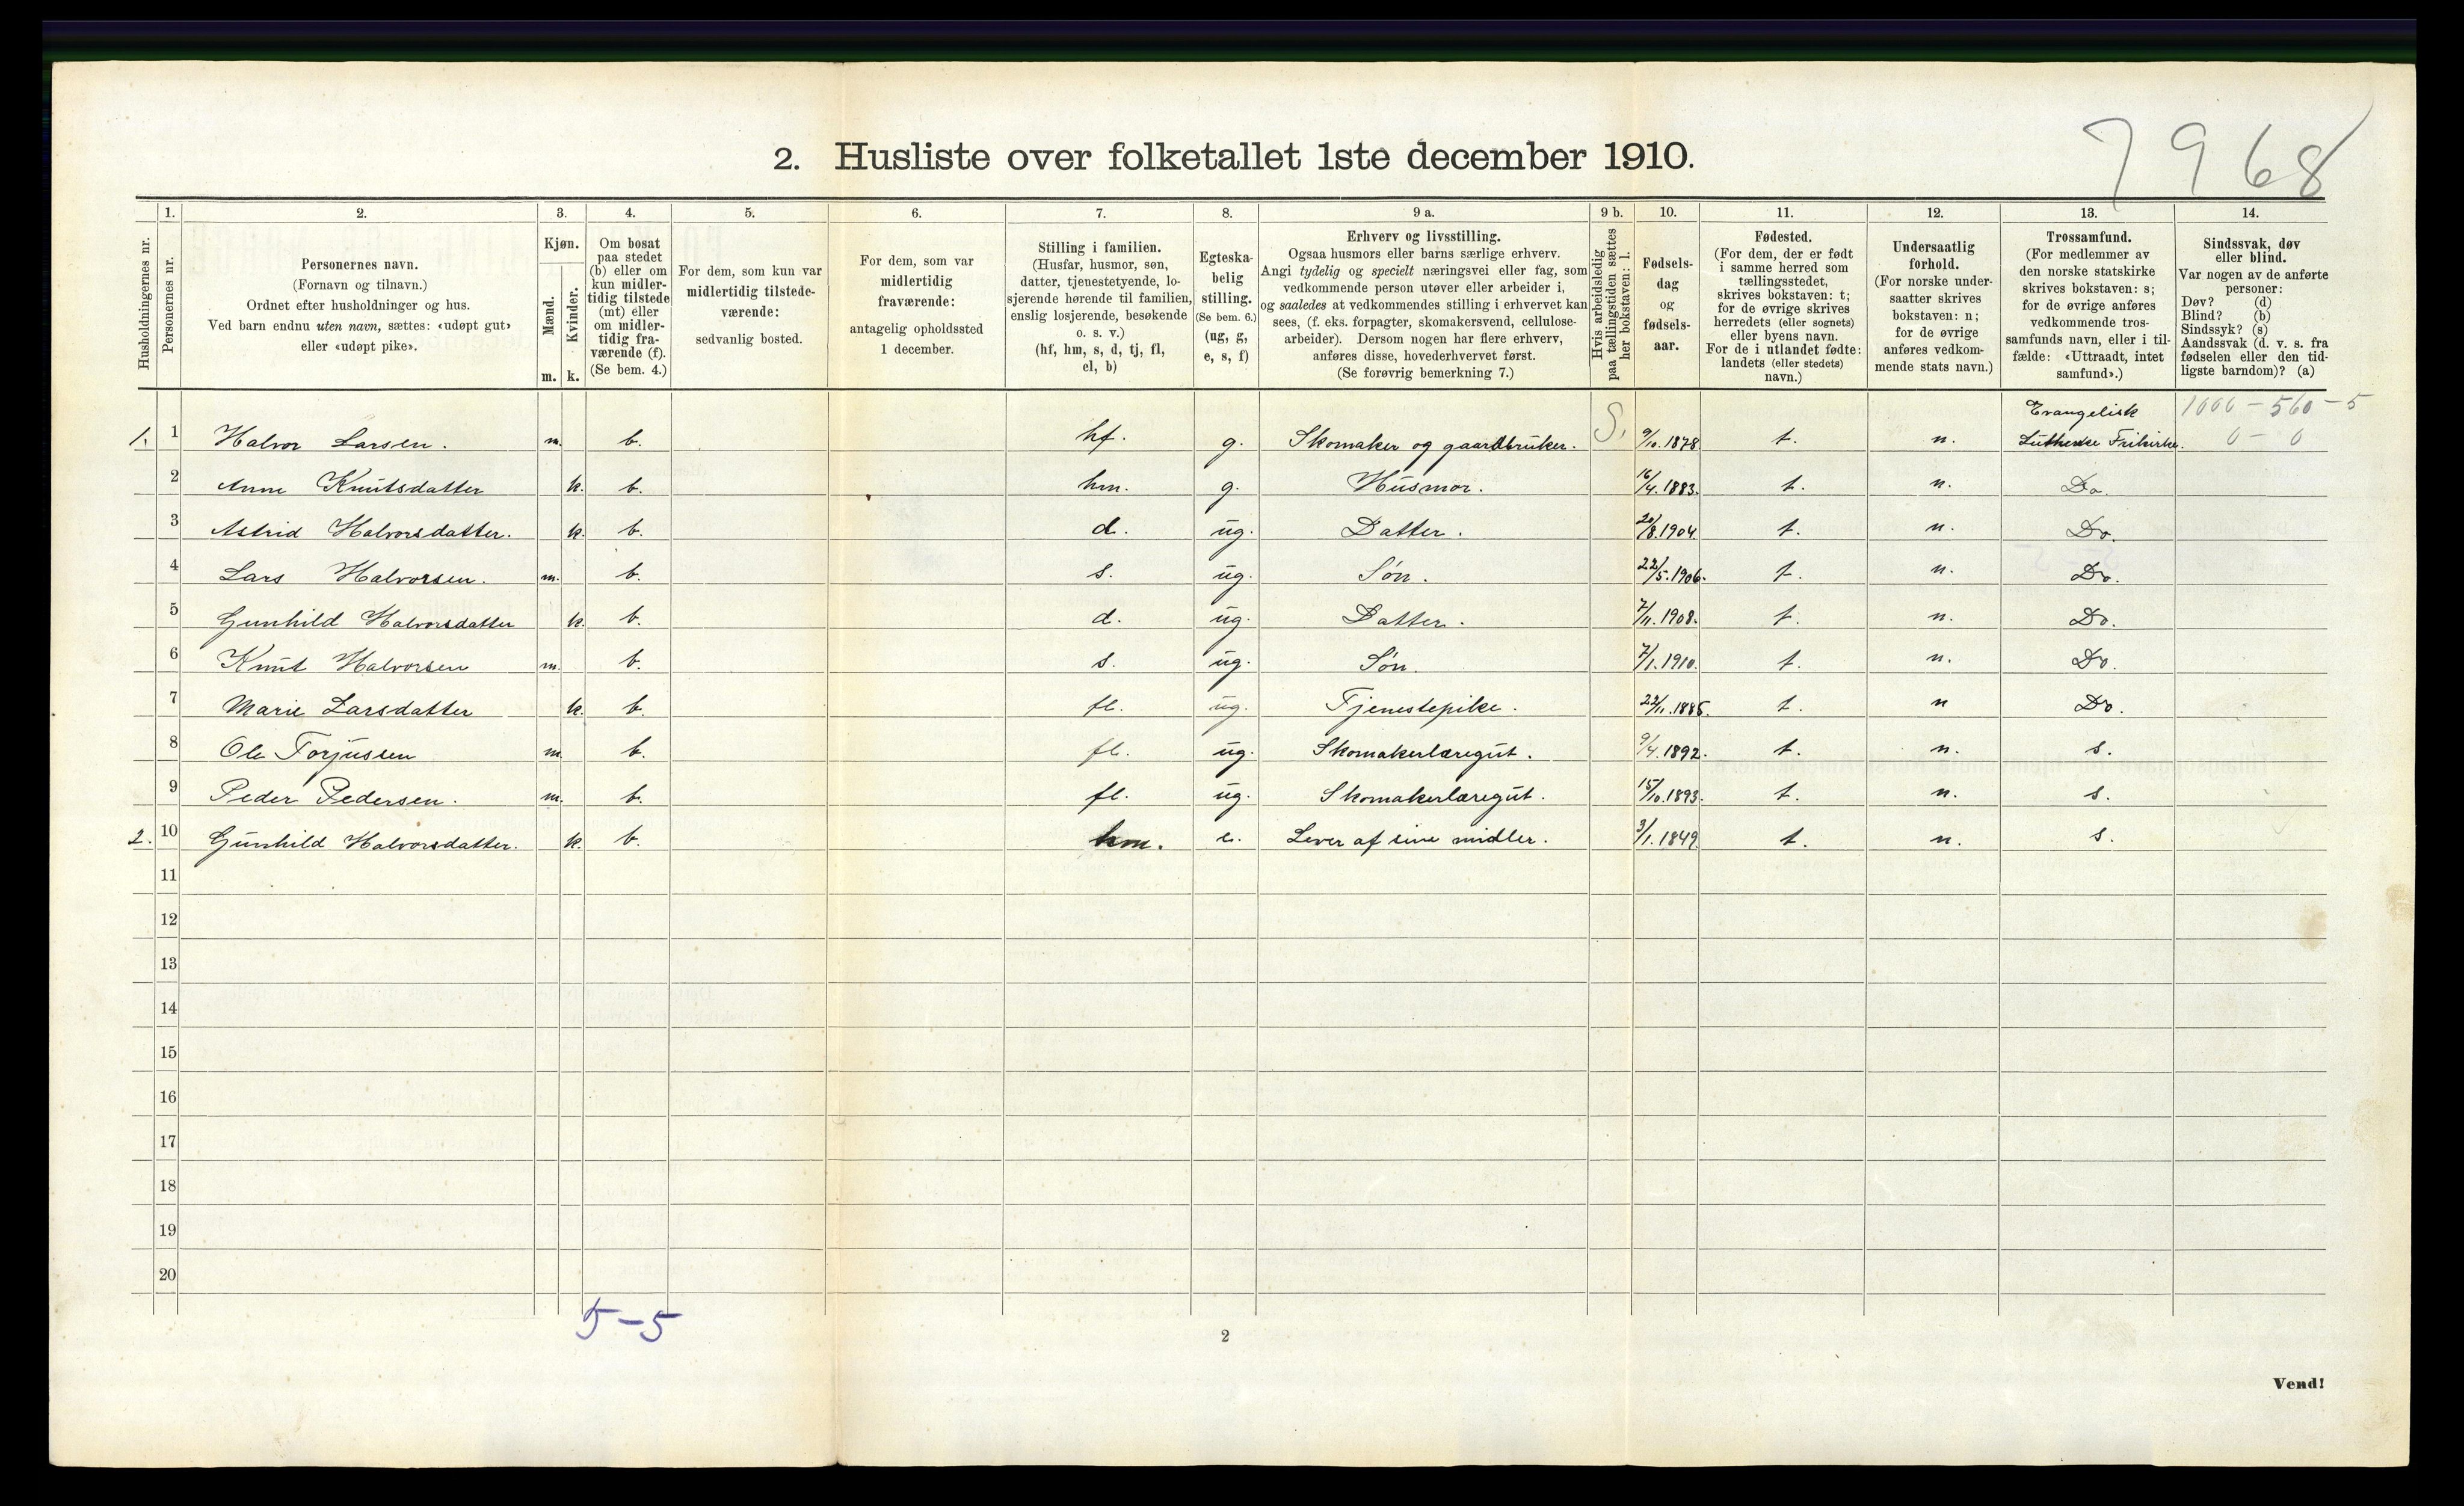 7968
2. Husliste over folketallet 1ste december 1910.
Husholdningernes nr.
1. Personernes nr.
2. Personernes navn.
(Fornavn og tilnavn.)
Ordnet efter husholdninger og hus.
Ved barn endnu uten navn, sættes: «udøpt gut»
eller «udøpt pike».
3. Kjøn.
Mænd. m.
Kvinder. k.
4. Om bosat
paa stedet
(b) eller om
kun midler-
tidig tilstede
(mt) eller
om midler-
tidig fra-
værende (f).
(Se bem. 4.)
5. For dem, som kun var
midlertidig tilstede-
værende:
sedvanlig bosted.
6. For dem, som var
midlertidig
fraværende:
antagelig opholdssted
1 december.
7. Stilling i familien.
(Husfar, husmor, søn,
datter, tjenestetyende, lo-
sjerende hørende til familien,
enslig losjerende, besøkende
o. s. v.)
(hf, hm, s, d, tj, fl,
el, b)
8. Egteska-
belig
stilling.
(Se bem. 6.)
(ug, g,
e, s, f)
9 a. Erhverv og livsstilling.
Ogsaa husmors eller barns særlige erhverv.
Angi tydelig og specielt næringsvei eller fag, som
vedkommende person utøver eller arbeider i,
og saaledes at vedkommendes stilling i erhvervet kan
sees, (f. eks. forpagter, skomakersvend, cellulose-
arbeider). Dersom nogen har flere erhverv,
anføres disse, hovederhvervet først.
(Se forøvrig bemerkning 7.)
9 b. Hvis arbeidsledig
paa tællingstiden sættes
her bokstaven: l.
10. Fødsels-
dag
og
fødsels-
aar.
11. Fødested.
(For dem, der er født
i samme herred som
tællingsstedet,
skrives bokstaven: t;
for de øvrige skrives
herredets (eller sognets)
eller byens navn.
For de i utlandet fødte:
landets (eller stedets)
navn.)
12. Undersaatlig
forhold.
(For norske under-
saatter skrives
bokstaven: n;
for de øvrige
anføres vedkom-
mende stats navn.)
13. Trossamfund.
(For medlemmer av
den norske statskirke
skrives bokstaven: s;
for de øvrige anføres
vedkommende tros-
samfunds navn, eller i til-
fælde: «Uttraadt, intet
samfund».)
14. Sindssvak, døv
eller blind.
Var nogen av de anførte
personer:
Døv? (d)
Blind? (b)
Sindssyk? (s)
Aandssvak (d. v. s. fra
fødselen eller den tid-
ligste barndom)? (a)
Evangelisk 1000 - 560 - 5
1. 1 Halvor Larsen. m. b. hf. g. Skomaker og gaardbruker. S. 9/10.1878 t. n. Lutherske Frikirke. 0 - 0
2 Anne Knutsdatter k. b. hm. g. Husmor. 16/4.1883. t. n. Do.
3 Astrid Halvorsdatter. k. b. d. ug. Datter. 20/8.1904 t. n. Do.
4 Lars Halvorsen. m. b. s. ug. Søn. 22/5.1906. t. n. Do.
5 Gunhild Halvorsdatter k. b. d. ug. Datter. 7/11.1908. t. n. Do.
6 Knut Halvorsen m. b. s. ug. Søn. 7/1.1910. t. n. Do.
7 Marie Larsdatter k. b. fl. ug. Tjenestepike. t. n Do.
8 Ole Torjussen m. b. fl. ug. Skomakerlæregut. 9/4.1892. t. n. s.
9 Peder Pedersen. m. b. fl. ug. Skomakerlæregut. 15/10.1893. t. n. s.
2. 10 Gunhild Halvorsdatter. k. b. hm. e. Lever af sine midler. 3/1.1849 t. n. s.
11
12
13
14
15
16
17
18
19
20
5-5
2
Vend!